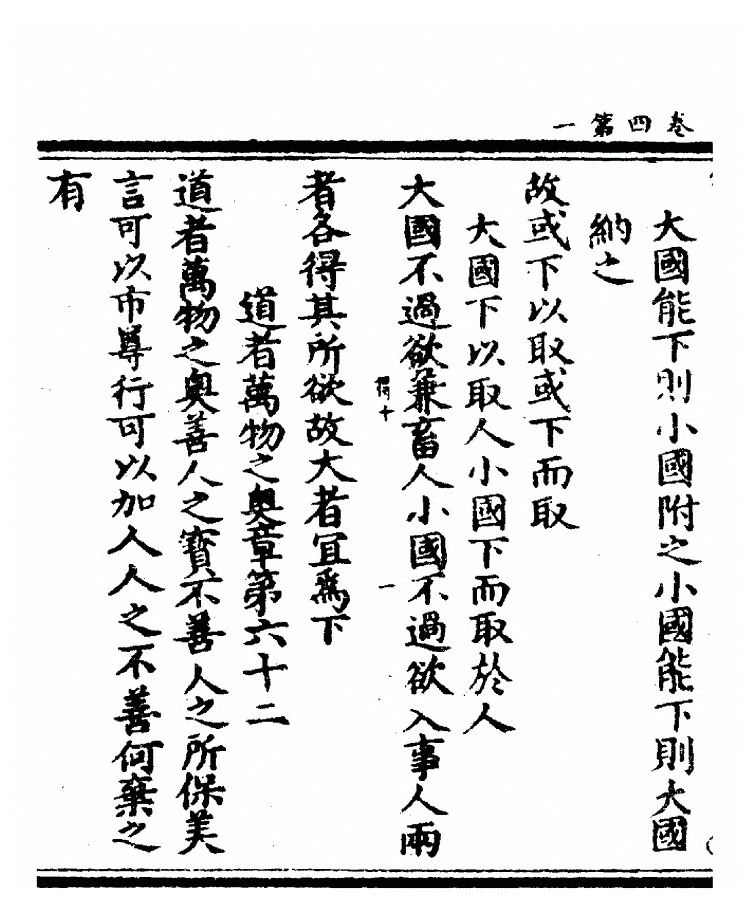 卷四第一
大國能下則小國附之小國能下則大國
納之
故或下以取或下而取
大國下以取人小國下而取於人
大國不過欲兼畜人小國不過欲入事人兩
者各得其所欲故大者冝爲下
道者萬物之奧章第六十二
道者萬物之奧善人之寶不善人之所保美
言可以市尊行可以加人人之不善何棄之
有